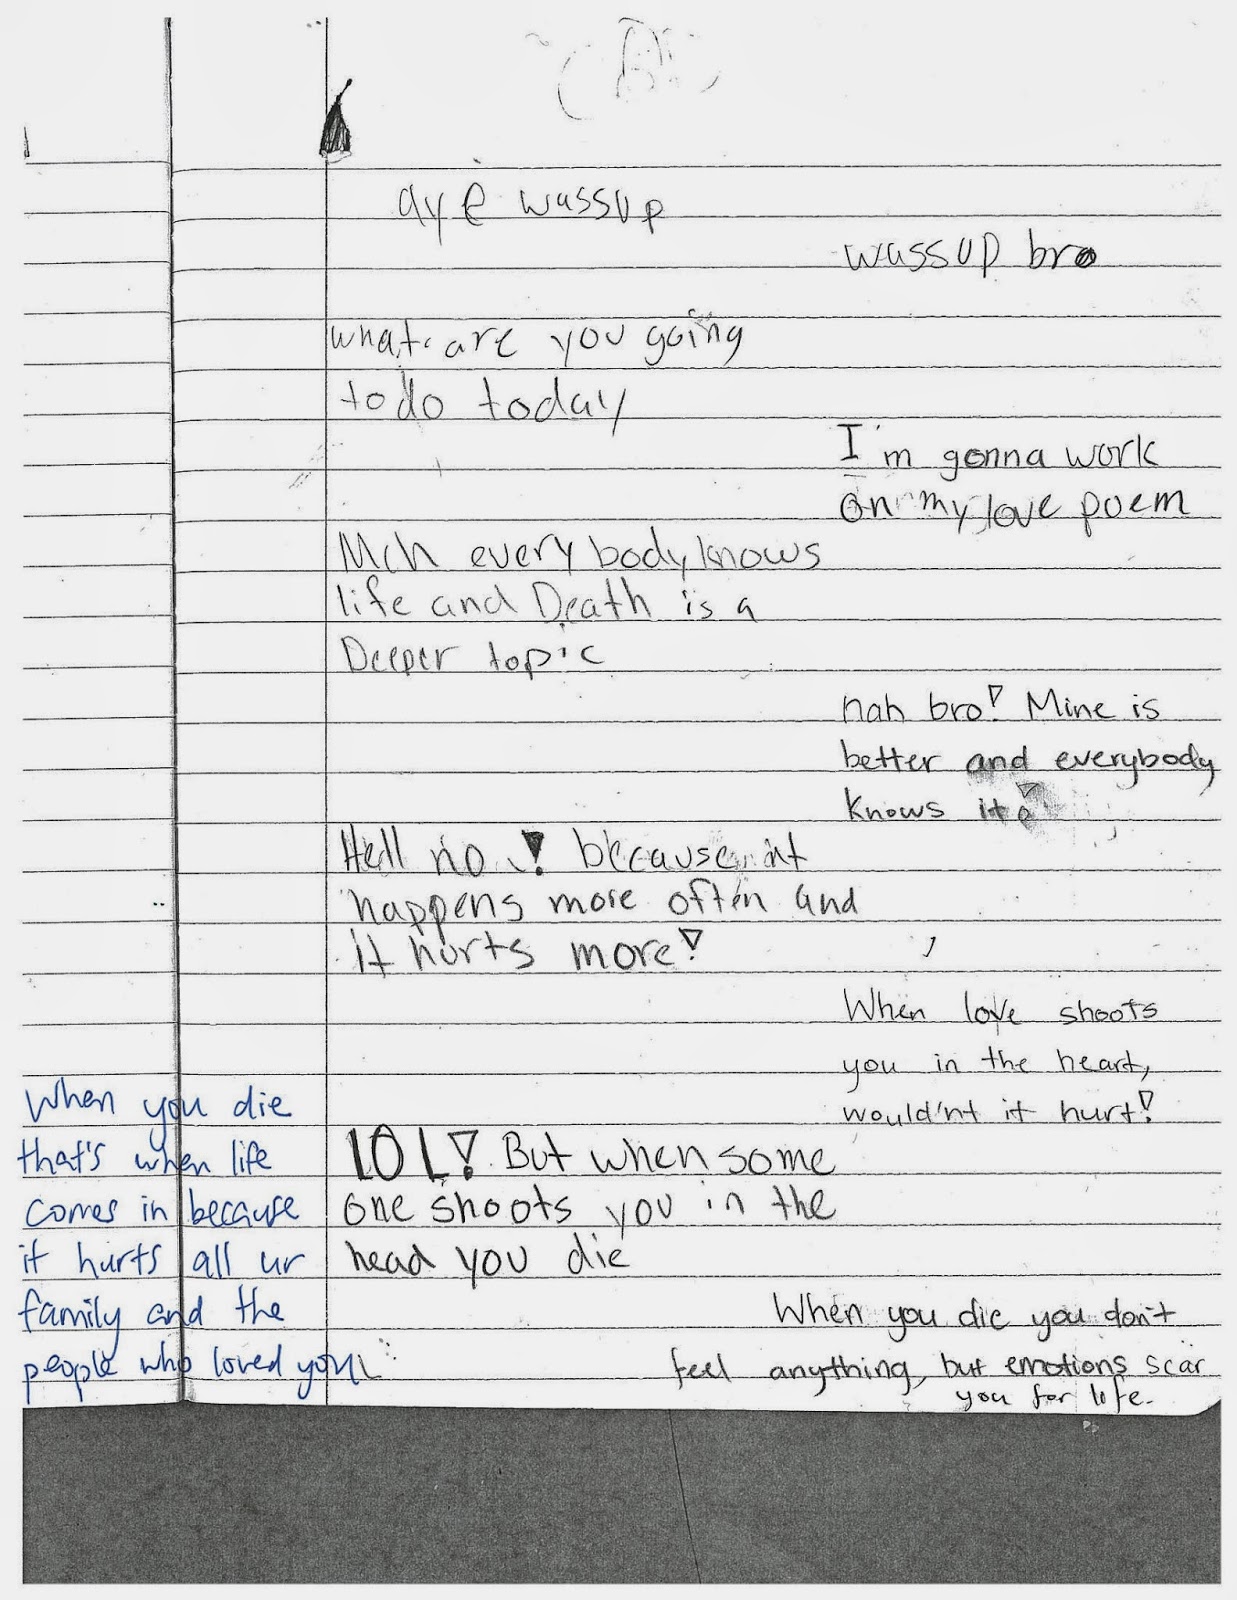 aye wassup
wassup bro
what are you going
to do today
I'm gonna work
on my love poem
Mch every body knows
life and Death is a
Deeper topic
nah bro! Mine is
better and everybody
knows it
Hell no! because it
happens more often and
it hurts more!
When love shoots
you in the heart,
would'nt it hurt!
LOL! But when some
one shoots you in the
head you die
When you die you don't
feel anything, but emotions scar
you for life.
When you die
that's when life
comes in because
it hurts all ur
family and the
people who loved you